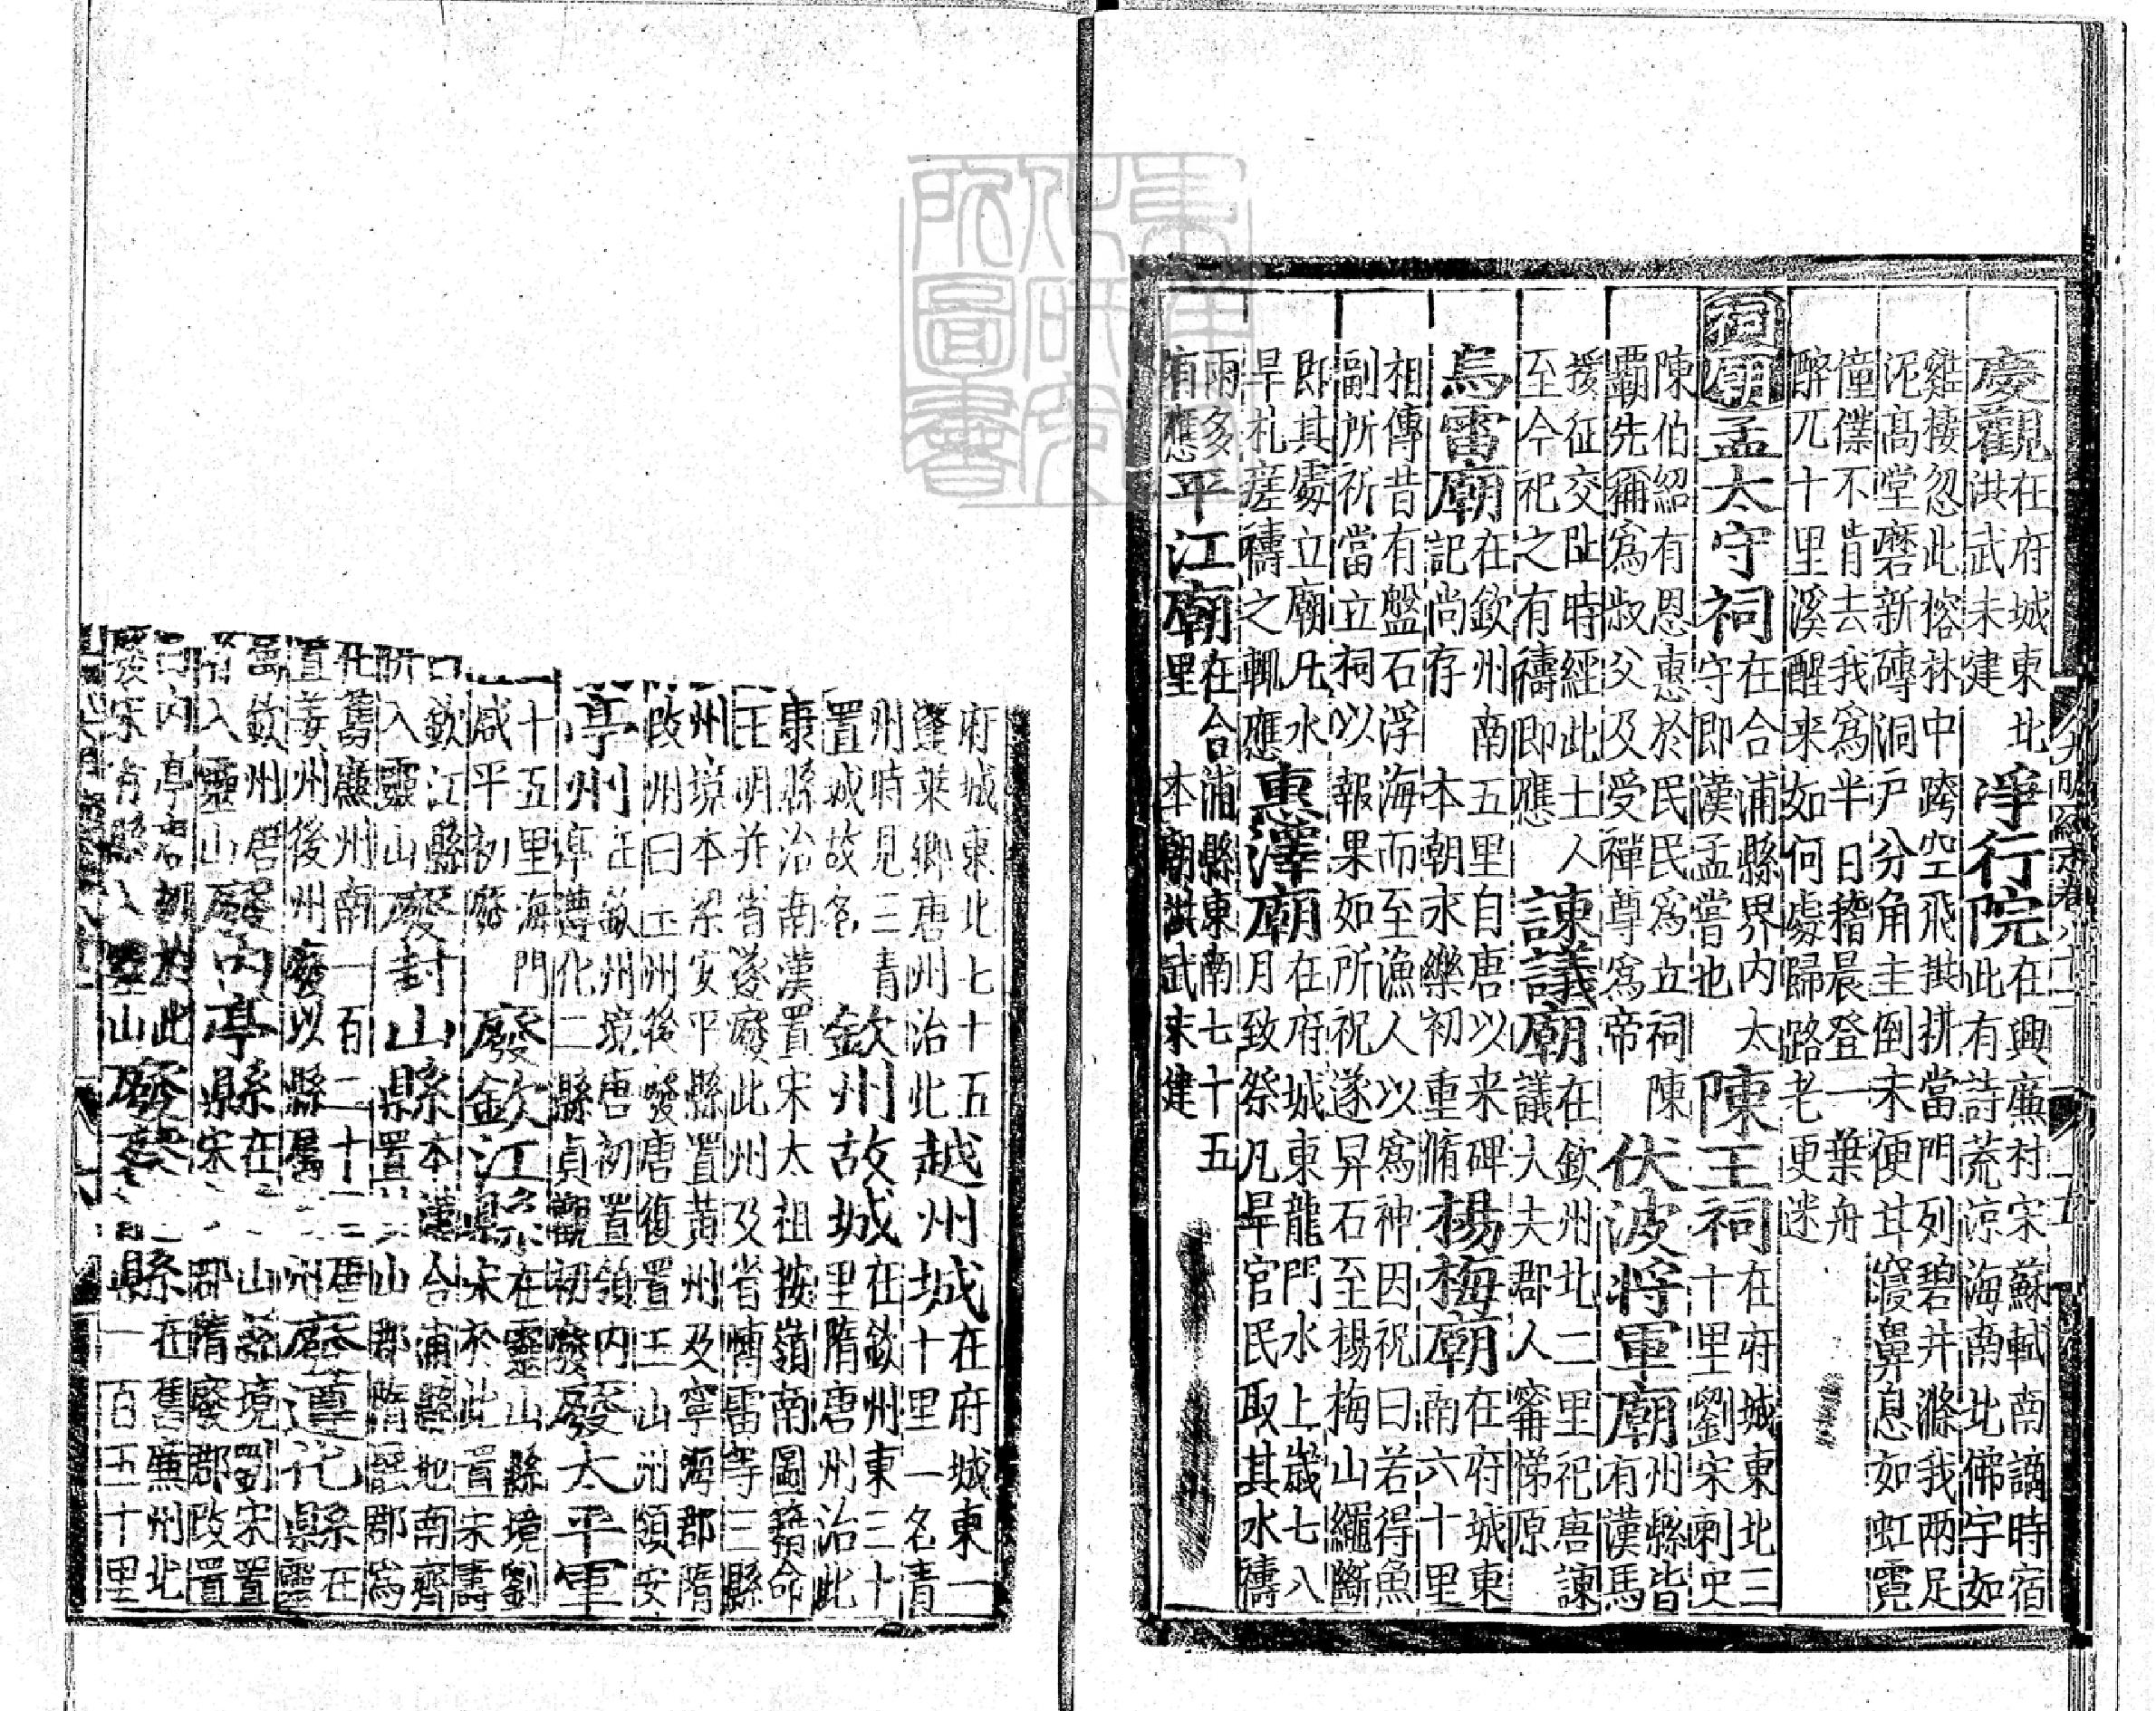 慶觀在府城東北洪武末建 淨行院在興廉村宋蘇軾南謫時宿此有詩荒涼海南北佛宇如
雞棲忽此榕林中跨空飛拱枅當門列碧井滌我兩足
泥高堂磨新磚洞戶分角主倒未便甘寢鼻息如虹霓
僮僕不肯去我為半日稽晨登一葉舟
醉兀十里溪醒来如何處歸路老更迷
祠廟孟太守祠在合浦縣界內太守即漢孟嘗也 陳王祠在府城東北三十里劉宋刺史
陳伯紹有恩惠於民民為立祠陳
覇先稱為叔父及受禪尊為帝 伏波將軍廟州縣皆有漢馬
援征交趾時經此土人
至今祀之有禱即應 諫議廟在欽州北二里祀唐諫議大夫郡人甯悌原
烏雷廟在欽州南五里自唐以来碑記尚存 本朝永樂初重脩 楊梅廟在府城東南六十里
相傳昔有盤石浮海而至漁人以為神因祝曰若得魚
副所祈當立祠以報果如所祝遂舁石至楊梅山繩斷
即其處立廟凡水
旱札瘥禱之輒應 惠澤廟在府城東龍門水上歲七八月致祭凡旱官民取其水禱
雨多
有應 平江廟在合浦縣東南七十五里 本朝洪武末建
府城東北七十五 越州城在府城東一十里一名青
蓬萊鄉唐州治北
州時見三青
置城故名 欽州故城在欽州東三十里隋唐州治此
康縣治南漢置宋太祖按嶺南圖籍命
王明并省遂廢此州及省博雷等三縣
州境本梁安平縣置黃州及寧海郡隋
改州曰玉州後廢唐復置玉山州領安
亭州在欽州境唐初置領內亭遵化二縣貞觀初廢 廢太平軍
十五里海門
咸平初廢 廢欽江縣在靈山縣境劉宋於此置宋壽
欽江縣
入靈山 廢封山縣本漢合浦縣地南齊置 山郡隋罷郡為
舊廉州南一百二十
置姜州後州廢以縣屬 州 廢遵化縣在靈
欽州唐
入靈山 廢內亭縣在 山縣境劉宋置宋 郡隋廢郡改置
內亭君
廢宋 縣入靈山 縣在舊廉州北一百五十里